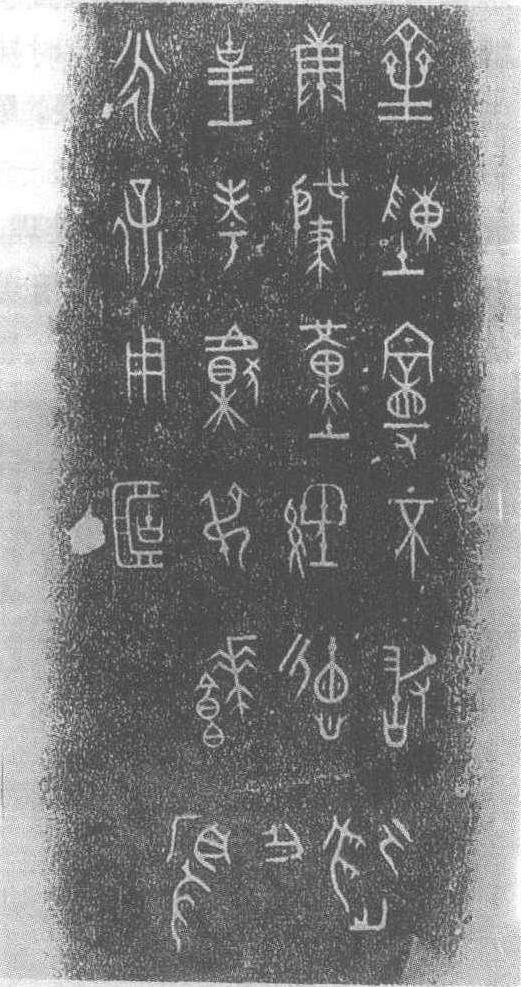 齊陳曼不敢逸
康肇堇經德乍
皇考獻弔饙盤
永保用𠤳